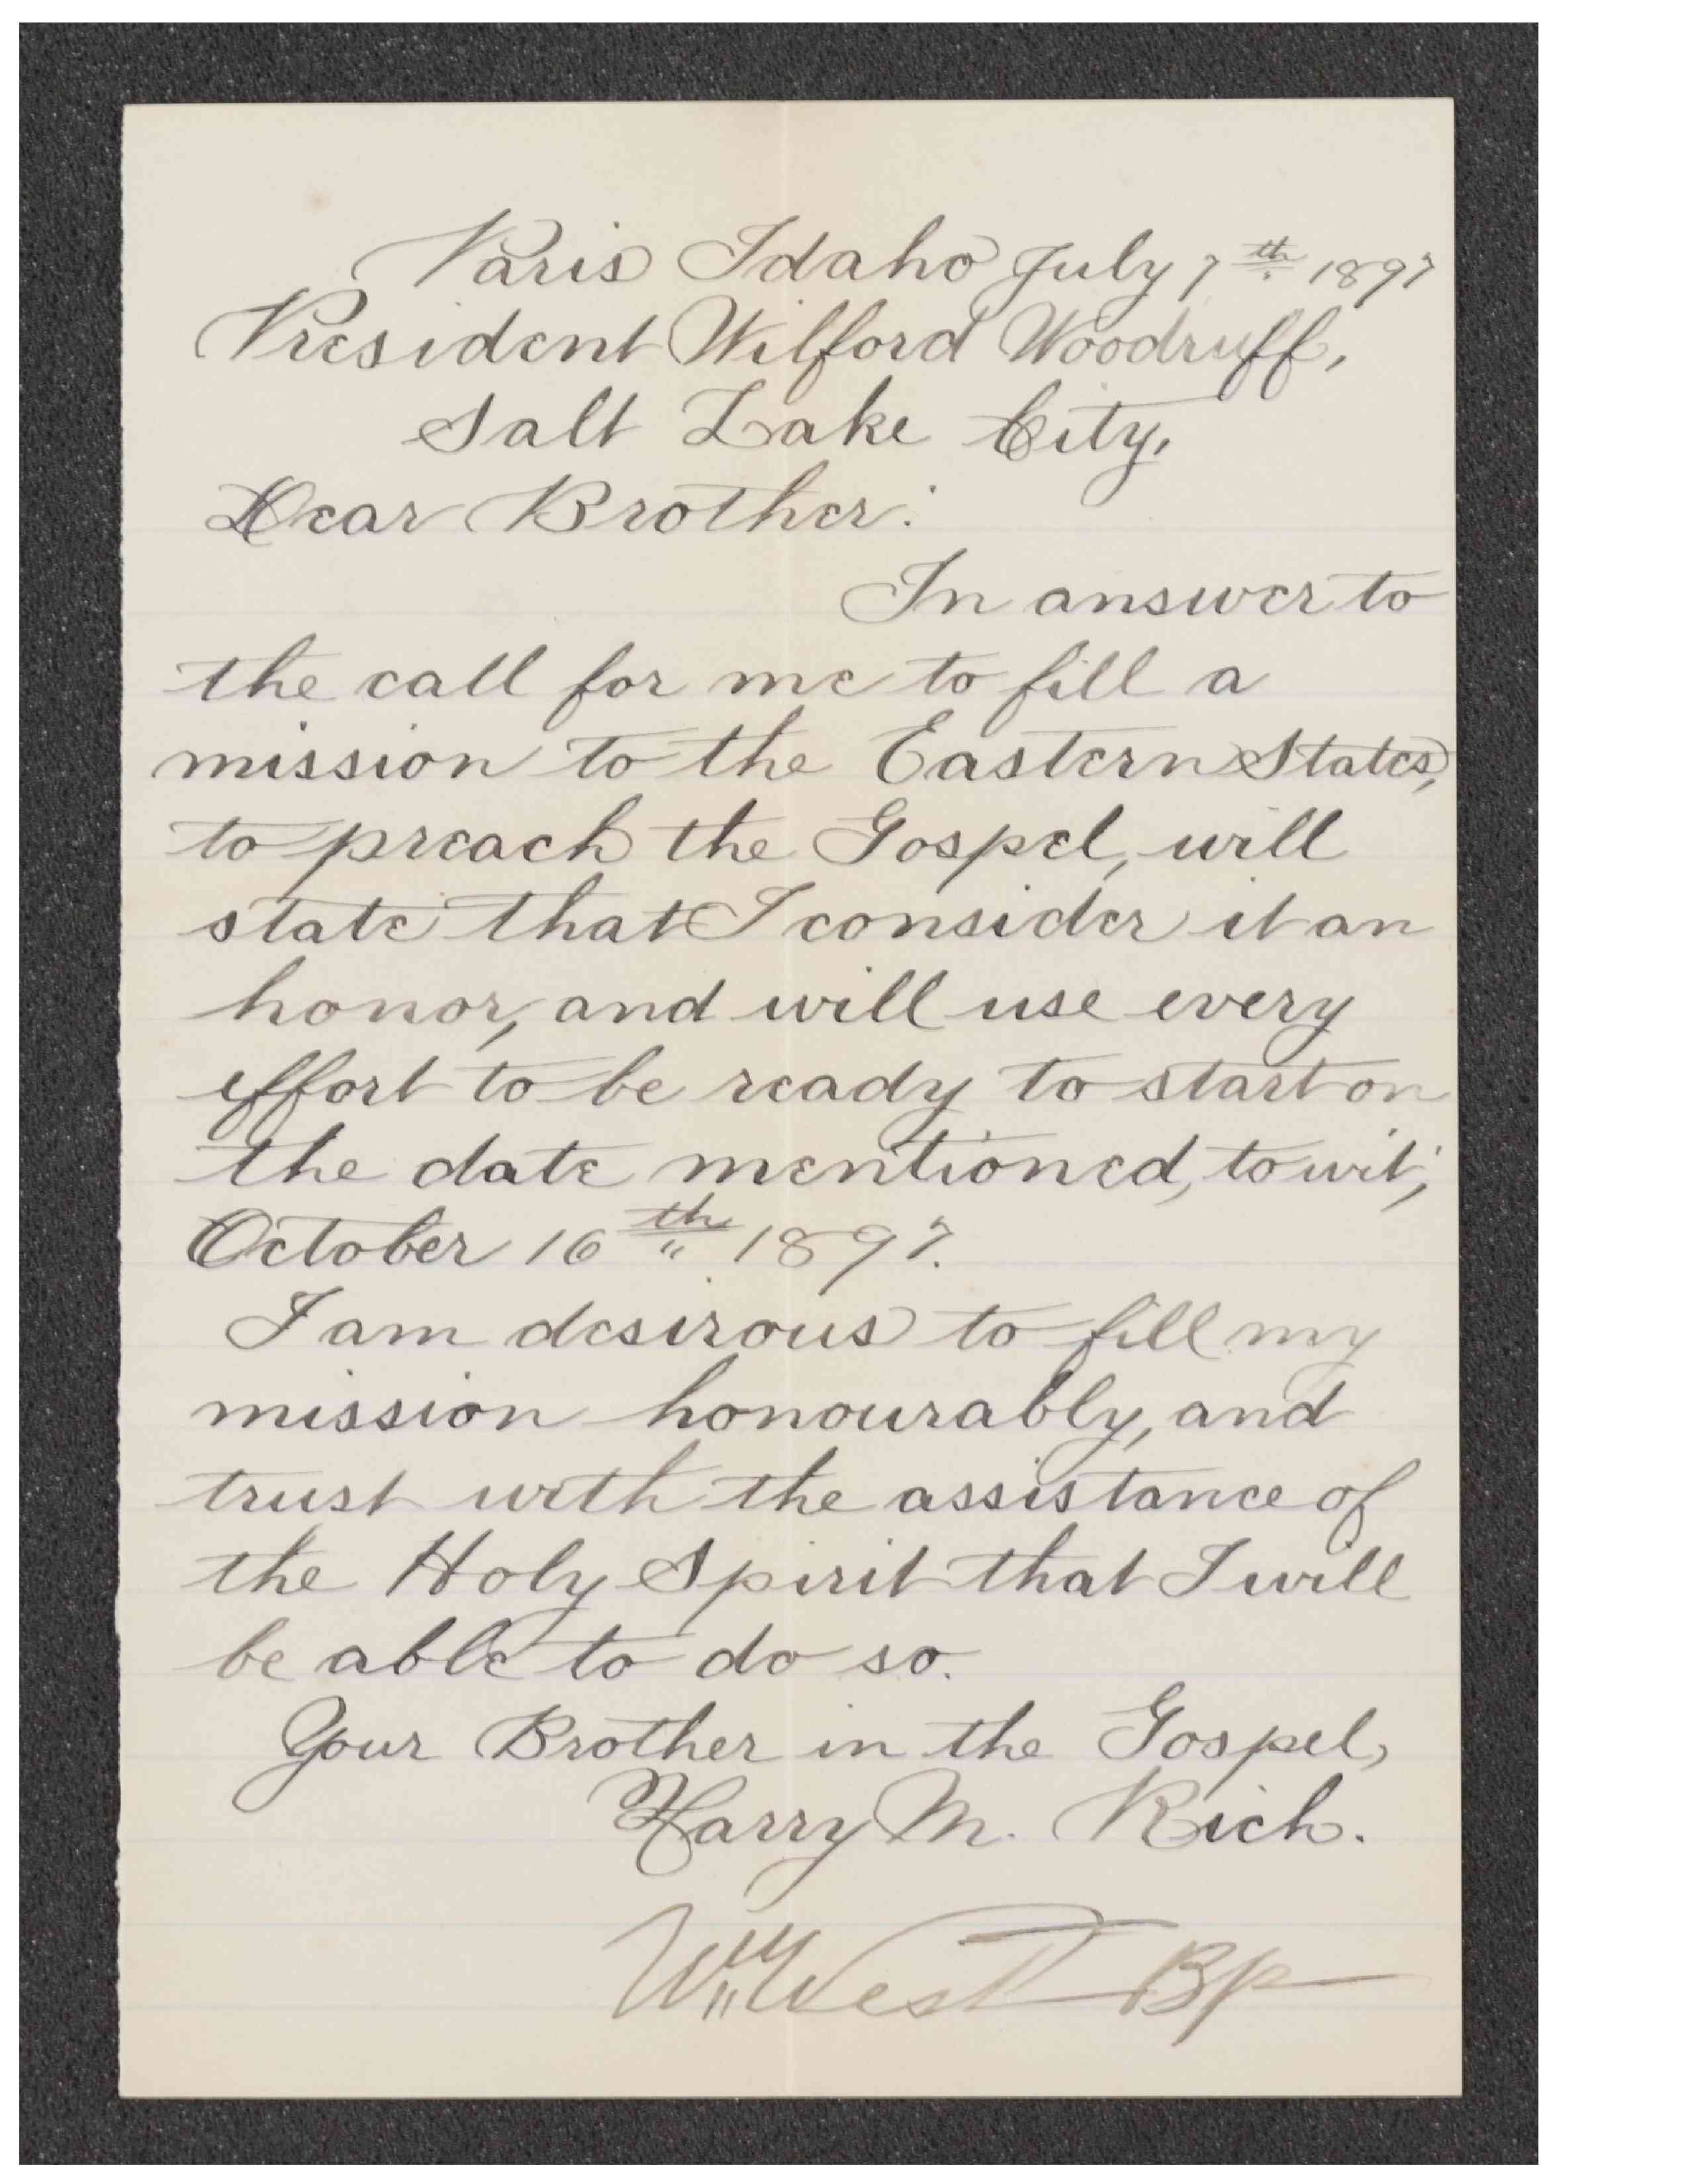 Paris Idaho July 7th 1897
President Wilford Woodruff,
Salt Lake City,
Dear Brother:
In answer to
the call for me to fill a
mission to the Eastern States,
to preach the Gospel, will
state that I consider it an
honor, and will use every
effort to be ready to start on
the date mentioned, to wit;
October 16th 1897.
I am desirous to fill my
mission honourably, and
trust with the assistance of
the Holy Spirit that I will
be able to do so.
Your Brother in the Gospel,
Harry M. Rich.
Wm West BP